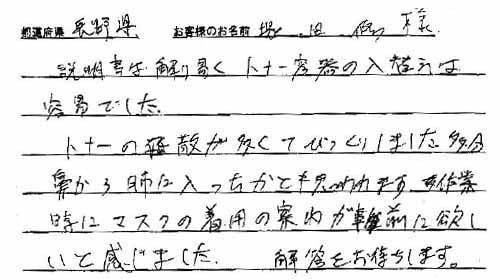 都道府県 長野県 お客様のお名前 様
説明書は解り易くトナー容器の入替えは
容易でした。
トナーの飛散が多くてびっくりしました 多分
鼻から肺に入ったかとも思われます 作業
時にマスクの着用の案内が事前に欲し
いと感じました。 解答をお待ちします。